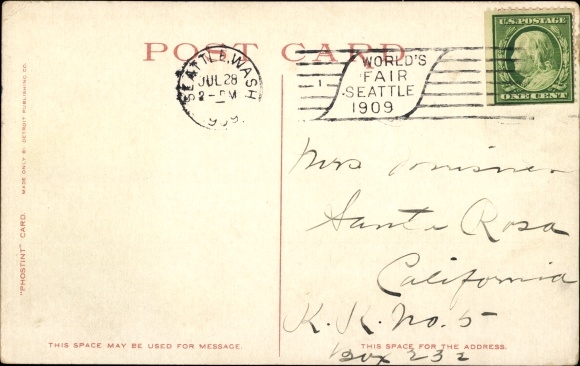 POST CARD
SEATTLE, WASH
JUL 28
2-PM
1909
1
WORLD'S
FAIR
SEATTLE
1909
U.S. POSTAGE
ONE CENT
"PHOSTINT" CARD.
MADE ONLY BY DETROIT PUBLISHING CO.
Mrs
Santa Rosa
California
R. R. No. 5
Box 232
THIS SPACE MAY BE USED FOR MESSAGE.
THIS SPACE FOR THE ADDRESS.